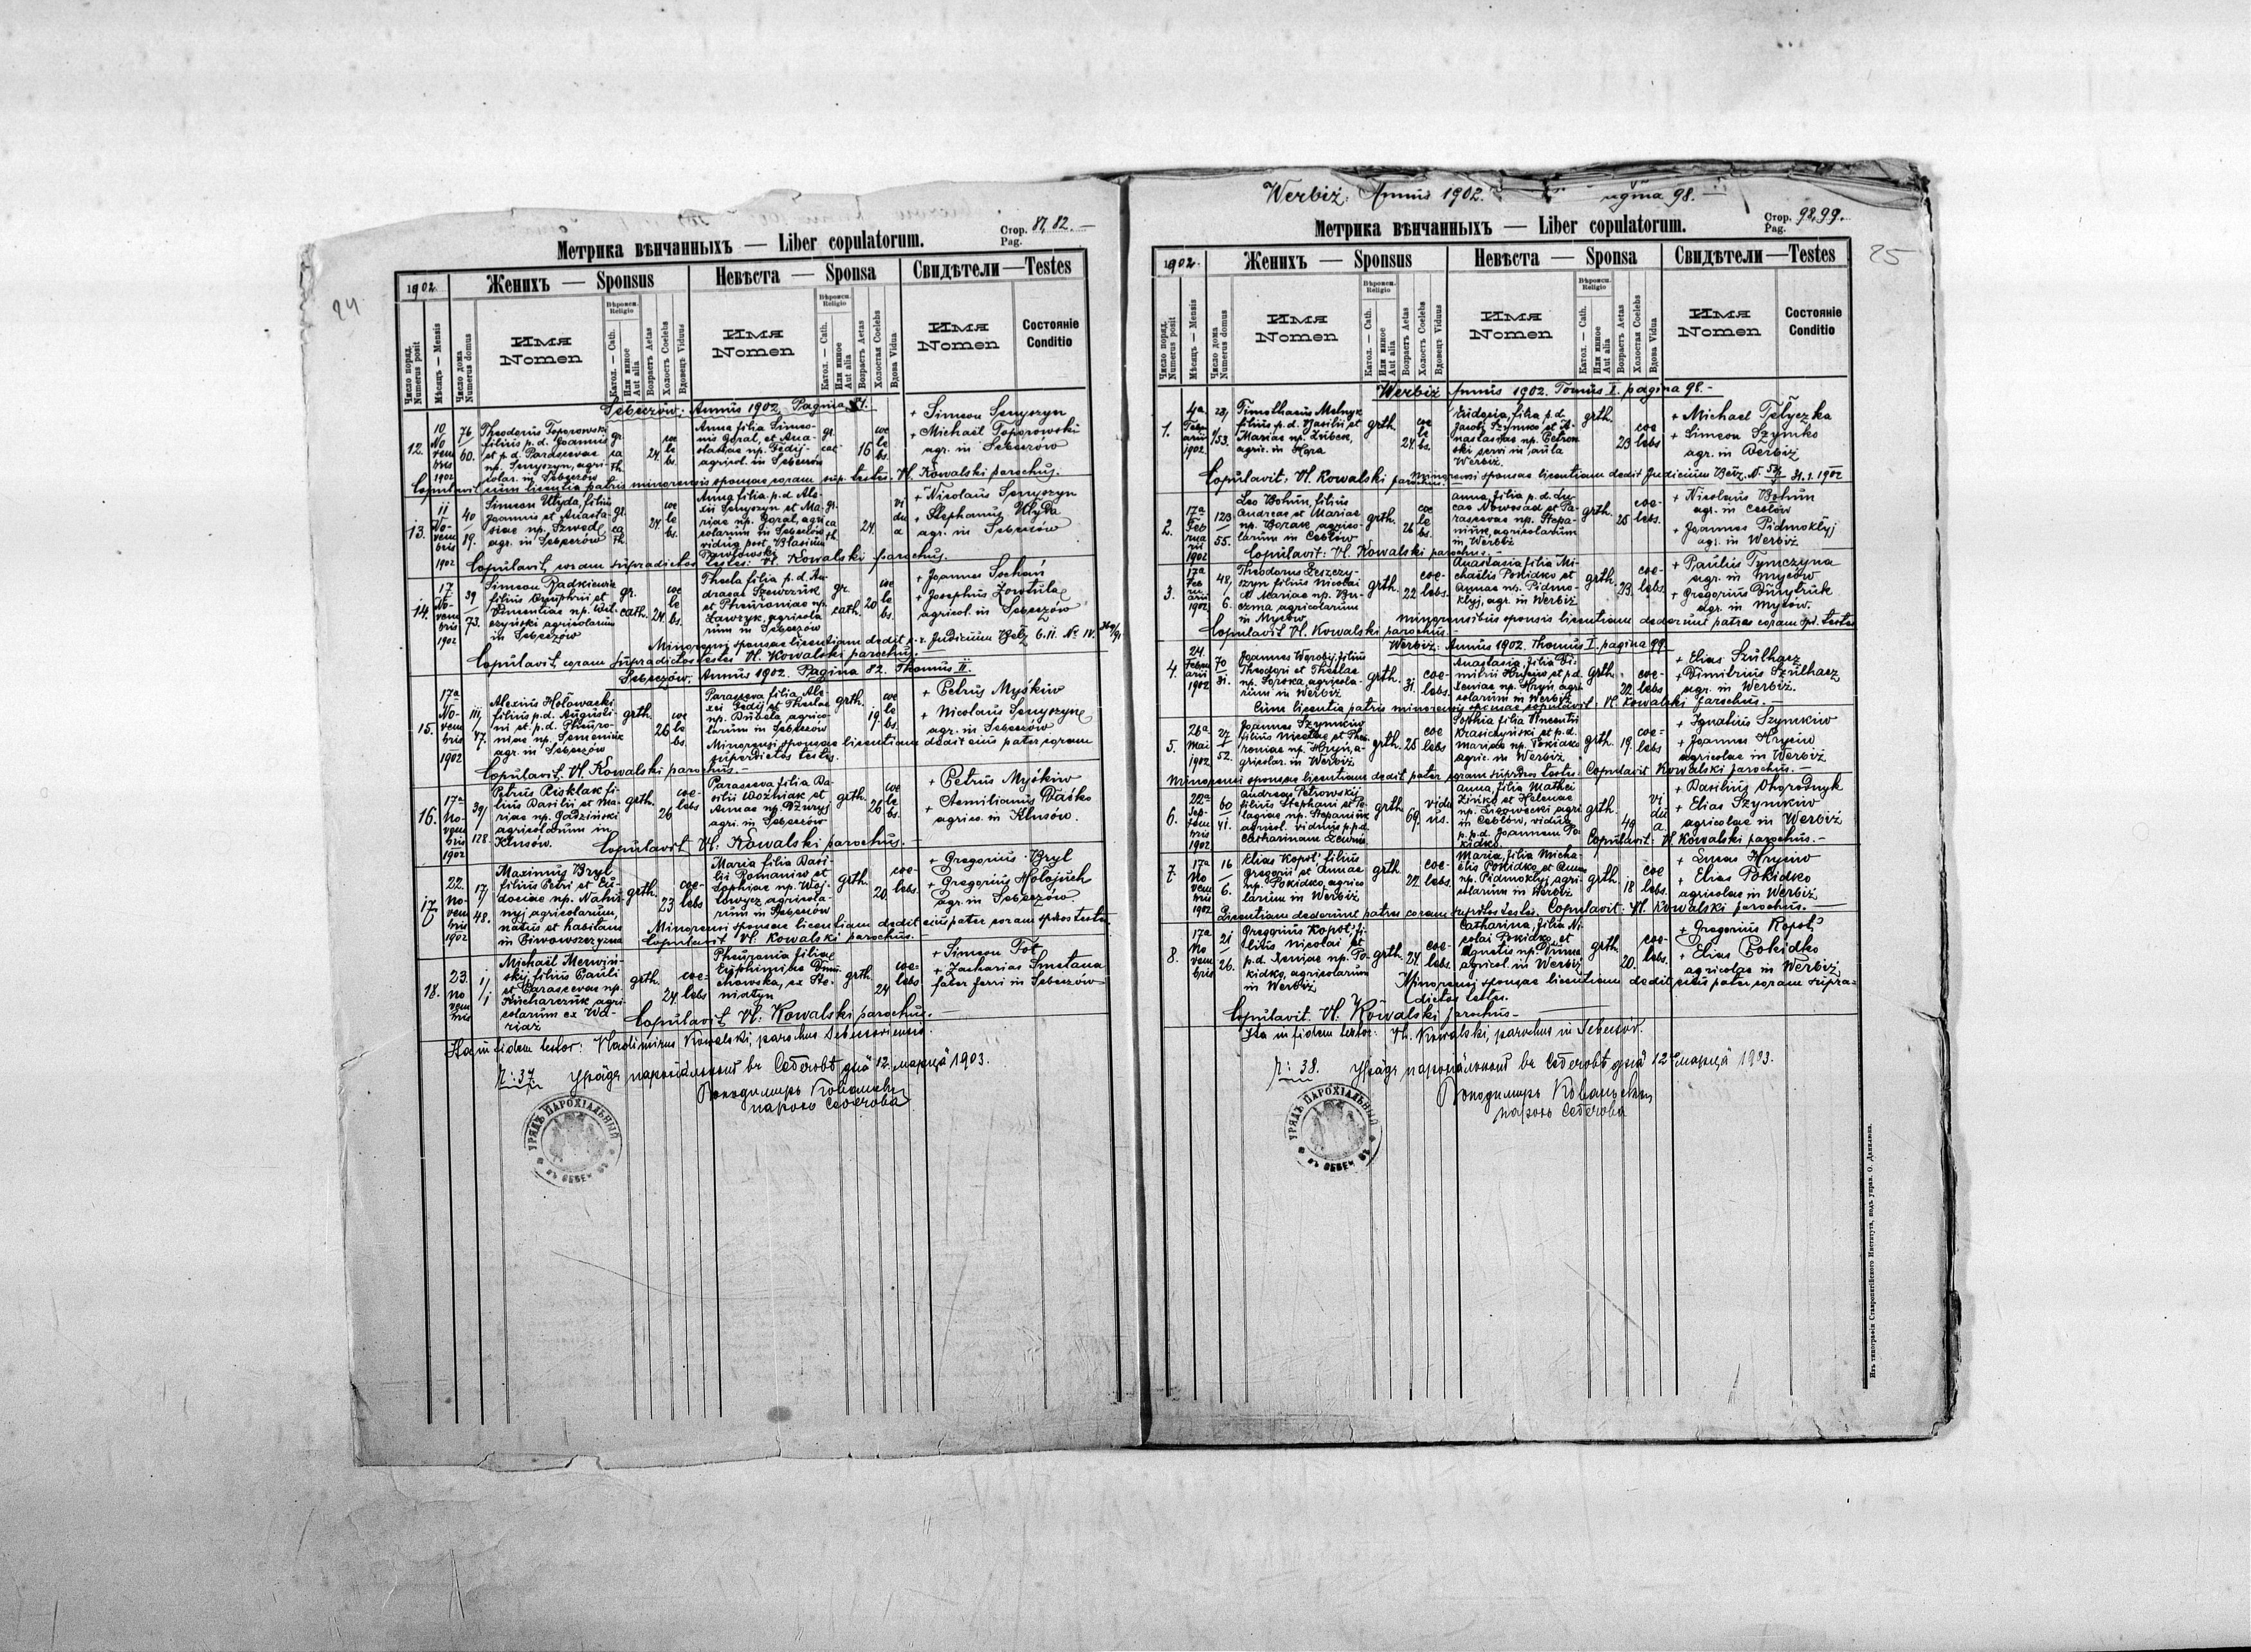 24
Стор. Pag. 81, 82. —
Метрика вѣнчанныхъ — Liber copulatorum.
1902.
Женихъ — Sponsus
Невѣста — Sponsa
Свидѣтели — Testes
Число поряд. Numerus posit
Мѣсяцъ — Mensis
Число дома Numerus domus
Имя Nomen
Вѣроисп. Religio
Катол. — Cath.
Или инное Aut alia
Возрастъ Aetas
Холостъ Coelebs
Вдовецъ Viduus
Имя Nomen
Вѣроисп. Religio
Катол. — Cath.
Или инное Aut alia
Возрастъ Aetas
Холостая Coelebs
Вдова Vidua
Имя Nomen
Состояніе Conditio
Sebeczów: Annus 1902. Pagina 81.
12.
10 Novembris 1902
76 60.
Theodorus Toporowski
filius p.d. Joannis
et p.d. Parascevae
np. Senyszyn, agri-
colar. in Sebeczów
gr. cath.
24
coelebs.
Anna filia Simeo-
nis Goral, et Ana-
stasiae np. Fedij-
agricol. in Sebeczów
gr. cat
16
coelebs.
+ Simeon Senyszyn
+ Michael Toporowski
agr. in Sebeczów
Copulavit cum licentia patris minorensis sponsae coram sup. testes. Vl. Kowalski parochus.
13.
11 Novembris 1902
40 89.
Simeon Ulyda, filius
Joannis et Anasta-
siae np. Szwed,
agr. in Sebeczów
gr. cath
24
coelebs.
Anna filia p.d. Ale-
xii Senyszyn et Ma-
riae np. Goral, agri
colarum in Sebeczów
vidua post Blasium
Pawlowski
gr. cath
24.
vidua
+ Nicolaus Senyszyn
+ Stephanus Ulyda
agr. in Sebeczów
Copulavit coram supradictos testes: Vl. Kowalski parochus.
14.
17 Novembris 1902
39 73.
Simeon Radkiewicz
filius Onuphrii et
in Sebeczów
gr. cath.
24
coelebs.
Thecla filia p.d. An-
dreae Szewczuk
et Pheuroniae np.
Lawryk, agricola
rum in Sebeczów
gr. cath.
20
coelebs.
+ Joannes Sochań
+ Josephus Zowtula
agricol. in Sebeczów
Minorensi sponsae licentiam dedit c.r. Judicium Bełz 6.11. No IV.
Copulavit coram supradictos testes Vl. Kowalski parochus.
Sebeczów. Annus 1902. Pagina 82. Thomus II.
15.
17a Novembris 1902
111, 77.
Alexius Hołowacki
filius p.d. Augusti-
ni et p.d. Pheuro-
niae np. Semeniuk
agr. in Sebeczów
grth.
26
coelebs.
Parasceva filia Ale-
xei Fedij et Theclae
np. Dubela agrico-
larum in Sebeczów
grth.
19
coelebs.
+ Petrus Myśkiw
+ Nicolaus Senyszyn
agr. in Sebeczów
Minorensi sponsae licentiam dedit eius pater coram
superdictos testes.
Copulavit. Vl. Kowalski parochus. —
16.
17a Novembris 1902
39/128.
Petrus Pisklak fi-
lius Basilii et Ma-
riae np. Gadziński
agricolarum in
Klusów.
grth.
26
coelebs
Parasceva filia Ba-
silii Woźniak et
Annae np. Dżuryj
agri. in Sebeczów
grth.
26
coelebs.
+ Petrus Myśkiw
+ Aemilianus Daćko
agrico. in Klusów.
Copulavit Vl. Kowalski parochus. —
17
22. Novembris 1902
17/48.
Maximus Bryl
filius Petri et Eu-
dociae np. Nahir-
nyj agricolarum,
natus et habitans
grth.
23
coelebs
Maria filia Basi-
lii Romaniw et
Sophiae np. Woj-
towycz agricola-
rum in Sebeczów
grth.
20
coelebs.
+ Gregorius Bryl
+ Gregorius Holojuch
agr. in Sebeczów.
Minorensi sponsae licentiam dedit eius pater coram sprdtos testes.
Copulavit Vl. Kowalski parochus.
18.
23. Novembris
1/1
Michael Merwiń-
skij filius Pauli
et Parascevae np.
Kucharczuk agri-
colarum ex Wa-
riaż
grth.
24
coelebs
Pheuronia filia
Euphimiae
chowska, ex Ste-
niatyn
grth.
24
coelebs
+ Simeon Fot
+ Zacharias Smetana
faber ferri in Sebeczów
Copulavit Vl. Kowalski parochus. —
Ita in fidem testor: Vladimirus Kowalski, parochus Sebeczoviensis.
Ч: 37. Урядъ парохіяльный въ Себечовѣ дня 12. марця 1903.
Володимиръ Ковальскій
парохъ Себечова
УРЯДЪ ПАРОХІАЛЬНЫЙ
Werbiż: Annus 1902.
98.
25
Стор. Pag. 98, 99.
Метрика вѣнчанныхъ — Liber copulatorum.
1902.
Женихъ — Sponsus
Невѣста — Sponsa
Свидѣтели — Testes
Число поряд. Numerus posit
Мѣсяцъ — Mensis
Число дома Numerus domus
Имя Nomen
Вѣроисп. Religio
Катол. — Cath.
Или инное Aut alia
Возрастъ Aetas
Холостъ Coelebs
Вдовецъ Viduus
Имя Nomen
Вѣроисп. Religio
Катол. — Cath.
Или инное Aut alia
Возрастъ Aetas
Холостая Coelebs
Вдова Vidua
Имя Nomen
Состояніе Conditio
Werbiż Annus 1902. Tomus I. pagina 98. —
1.
4a Februarii 1902
Timotheus Melnyk
filius p.d. Basilii et
Mariae np. Zubek,
agric. in Hora
grth.
24
coelebs.
Eudoxia, filia p.d.
Jacobi Szymko et A-
nastasiae np. Petrow
ski servi in aula
Werbiż.
grth.
23
coelebs
+ Michael Telyczka
+ Simeon Szymko
agr. in Werbiż
Copulavit: Vl. Kowalski parochus. Minorensi sponsae licentiam dedit Judicium Bełz. N. 31.1.1902
2.
17a Februarii 1902
123 55.
Leo Bohun, filius
Andreae et Mariae
np. Borak agrico-
larum in Ceblów
grth.
26
coelebs.
Anna, filia p.d. Lu-
cae Nowosad et Pa-
rascevae np. Stepa-
niuk, agricolarum
in Werbiż
grth.
25
coelebs.
+ Nicolaus Bohun
agr. in Ceblów
+ Joannes Pidmoklyj
agr. in Werbiż
Copulavit: Vl. Kowalski parochus. —
3.
17a Februarii 1902
48, 6.
Theodorus Leszczy-
szyn filius Nicolai
et Mariae np. Bu-
czma agricolarum
in Myców
grth.
22
coelebs.
Anastasia filia Mi-
chaelis Pokidko et
Annae np. Pidmo-
klyj, agr. in Werbiż
grth.
23.
coelebs.
+ Paulus Tymczyna
agr. in Myców
+ Gregorius Dmytruk
agr. in Myców.
minorensibus sponsis licentiam dederunt patres coram spr. testes
Copulavit Vl. Kowalski parochus. —
Werbiż: Annus 1902. Thomus I. pagina 99.
4.
24. Februarii 1902
70 31.
Joannes Worobij, filius
Theodori et Theclae
np. Soroka, agricola-
rum in Werbiż
grth.
31.
coelebs.
Anastasia, filia Di-
mitrii Hryciw et p.d.
Xeniae np. Hryń, agri
colarum in Werbiż
grth.
22
coelebs
+ Elias Szulhacz
+ Dimitrius Szulhacz
agr. in Werbiż.
Cum licentia patris minorensis sponsae copulavit: Vl. Kowalski parochus. —
5.
26a Maii 1902
27 52.
Joannes Szymkiw
filius Nicolae et Pheu
roniae np. Hryń, a-
gricolar. in Werbiż
grth.
25
coelebs
Sophia filia Vincentii
Krasiczyński et p.d.
Mariae np. Pokidko
agric. in Werbiż
grth.
19.
coelebs
+ Ignatius Szymkiw
+ Joannes Hryciw
agricolae in Werbiż
Minorensi sponsae licentiam dedit pater coram suprdtos testes. Copulavit Kowalski parochus. —
6.
22a Septembris 1902
60 41.
Andreas Petrowskij
filius Stephani et Pe-
lagiae np. Stepaniuk
agricol. viduus p.p.d.
Catharinam Lewun
grth.
69.
viduus.
Anna, filia Mathei
Zinko et Helenae
in Ceblów, vidua
p.p.d. Joannem Po
kidko
grth.
49
vidua.
+ Basilius Ohorodnyk
+ Elias Szymkiw
agricolae in Werbiż
Copulavit: Vl. Kowalski parochus. —
7.
17a Novembris 1902
16 6.
Elias Kopot' filius
Gregorii et Annae
np. Pokidko, agrico
larum in Werbiż
grth.
22
coelebs.
Maria, filia Micha-
elis Pokidko et Annae
np. Pidmoklyj agri-
colarum in Werbiż
grth.
18
coelebs.
+ Lucas Hryciw
+ Elias Pokidko
agricolae in Werbiż
Licentiam dederunt patres coram suprdtos testes. Copulavit: Vl. Kowalski parochus. —
8.
17a Novembris
21 26.
Gregorius Kopot', fi-
lius Nicolai et
p.d. Xeniae np. Po-
kidko, agricolarum
in Werbiż
grth.
24.
coelebs.
Catharina, filia Ni-
colai Pokidko, et
agricol. in Werbiż
grth.
20.
coelebs.
+ Gregorius Kopot'
+ Elias Pokidko
agricolae in Werbiż
Minorensi sponsae licentiam dedit eius pater coram supra-
dictos testes.
Copulavit. Vl. Kowalski parochus —
Ita in fidem testor: Vl. Kowalski, parochus in Sebeczów.
Ч: 38. Урядъ парохіяльный въ Себечовѣ дня 12 марця 1903.
Володимиръ Ковальскій
парохъ Себечова
УРЯДЪ ПАРОХІАЛЬНЫЙ
Изъ типографіи Ставропигійского Института, подъ управ. О. Данилюка.